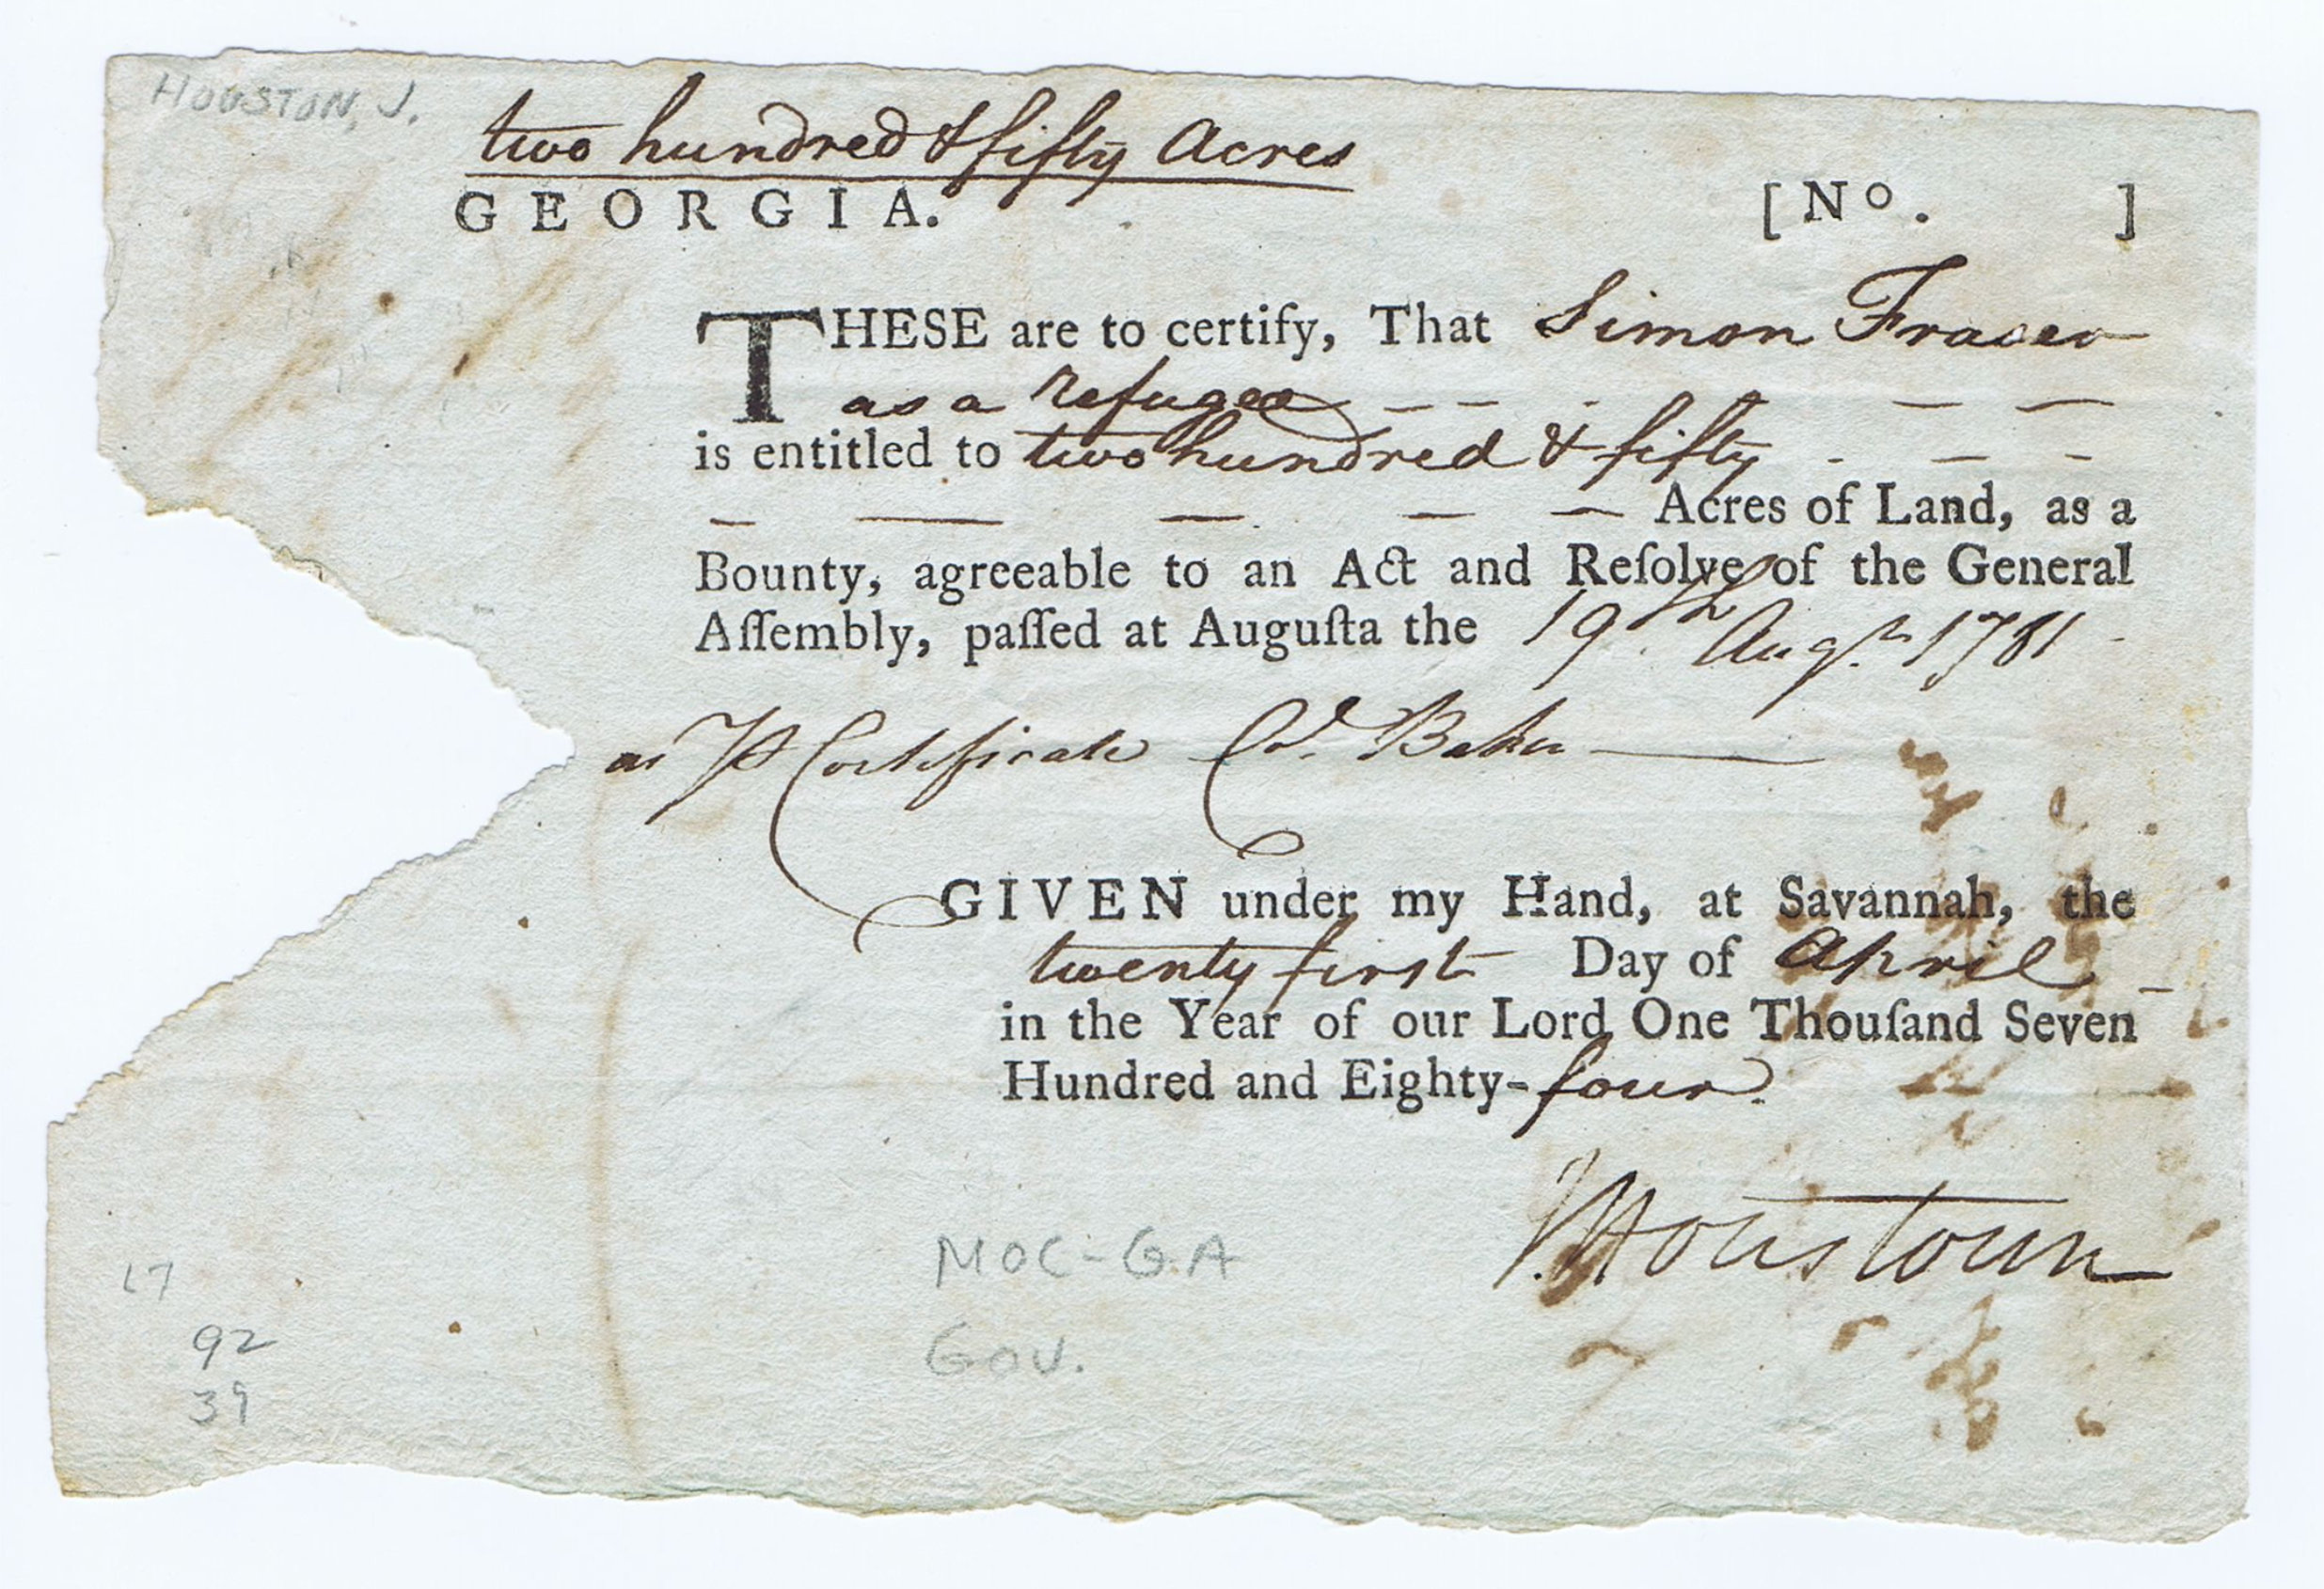 HOUSTON, J.
two hundred & fifty Acres
GEORGIA. [No. ]
THESE are to certify, That Simon Fraser
as a refugee
is entitled to two hundred & fifty
Acres of Land, as a
Bounty, agreeable to an Act and Reſolve of the General
Aſſembly, paſſed at Auguſta the 19th Augt. 1781
as P Certificate Col. Baker
GIVEN under my Hand, at Savannah, the
twenty first Day of April
in the Year of our Lord One Thouſand Seven
Hundred and Eighty-four.
J. Houstoun
MOC-GA
GOV.
17
92
39